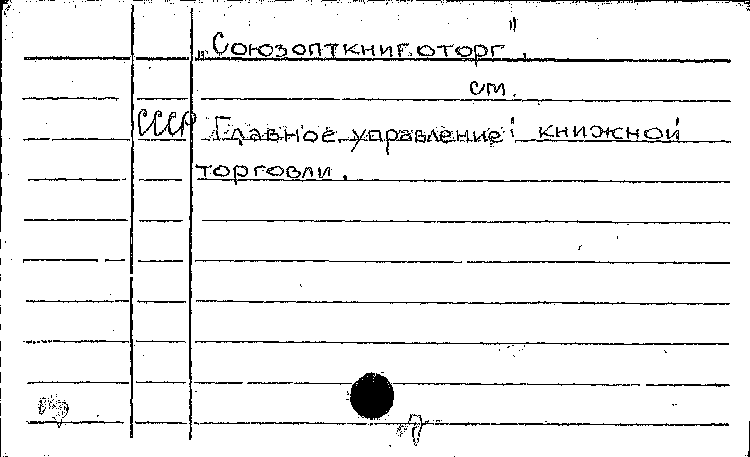 „Союзопткниготорг".
см.
СССР Главное управление книжной
торговли.